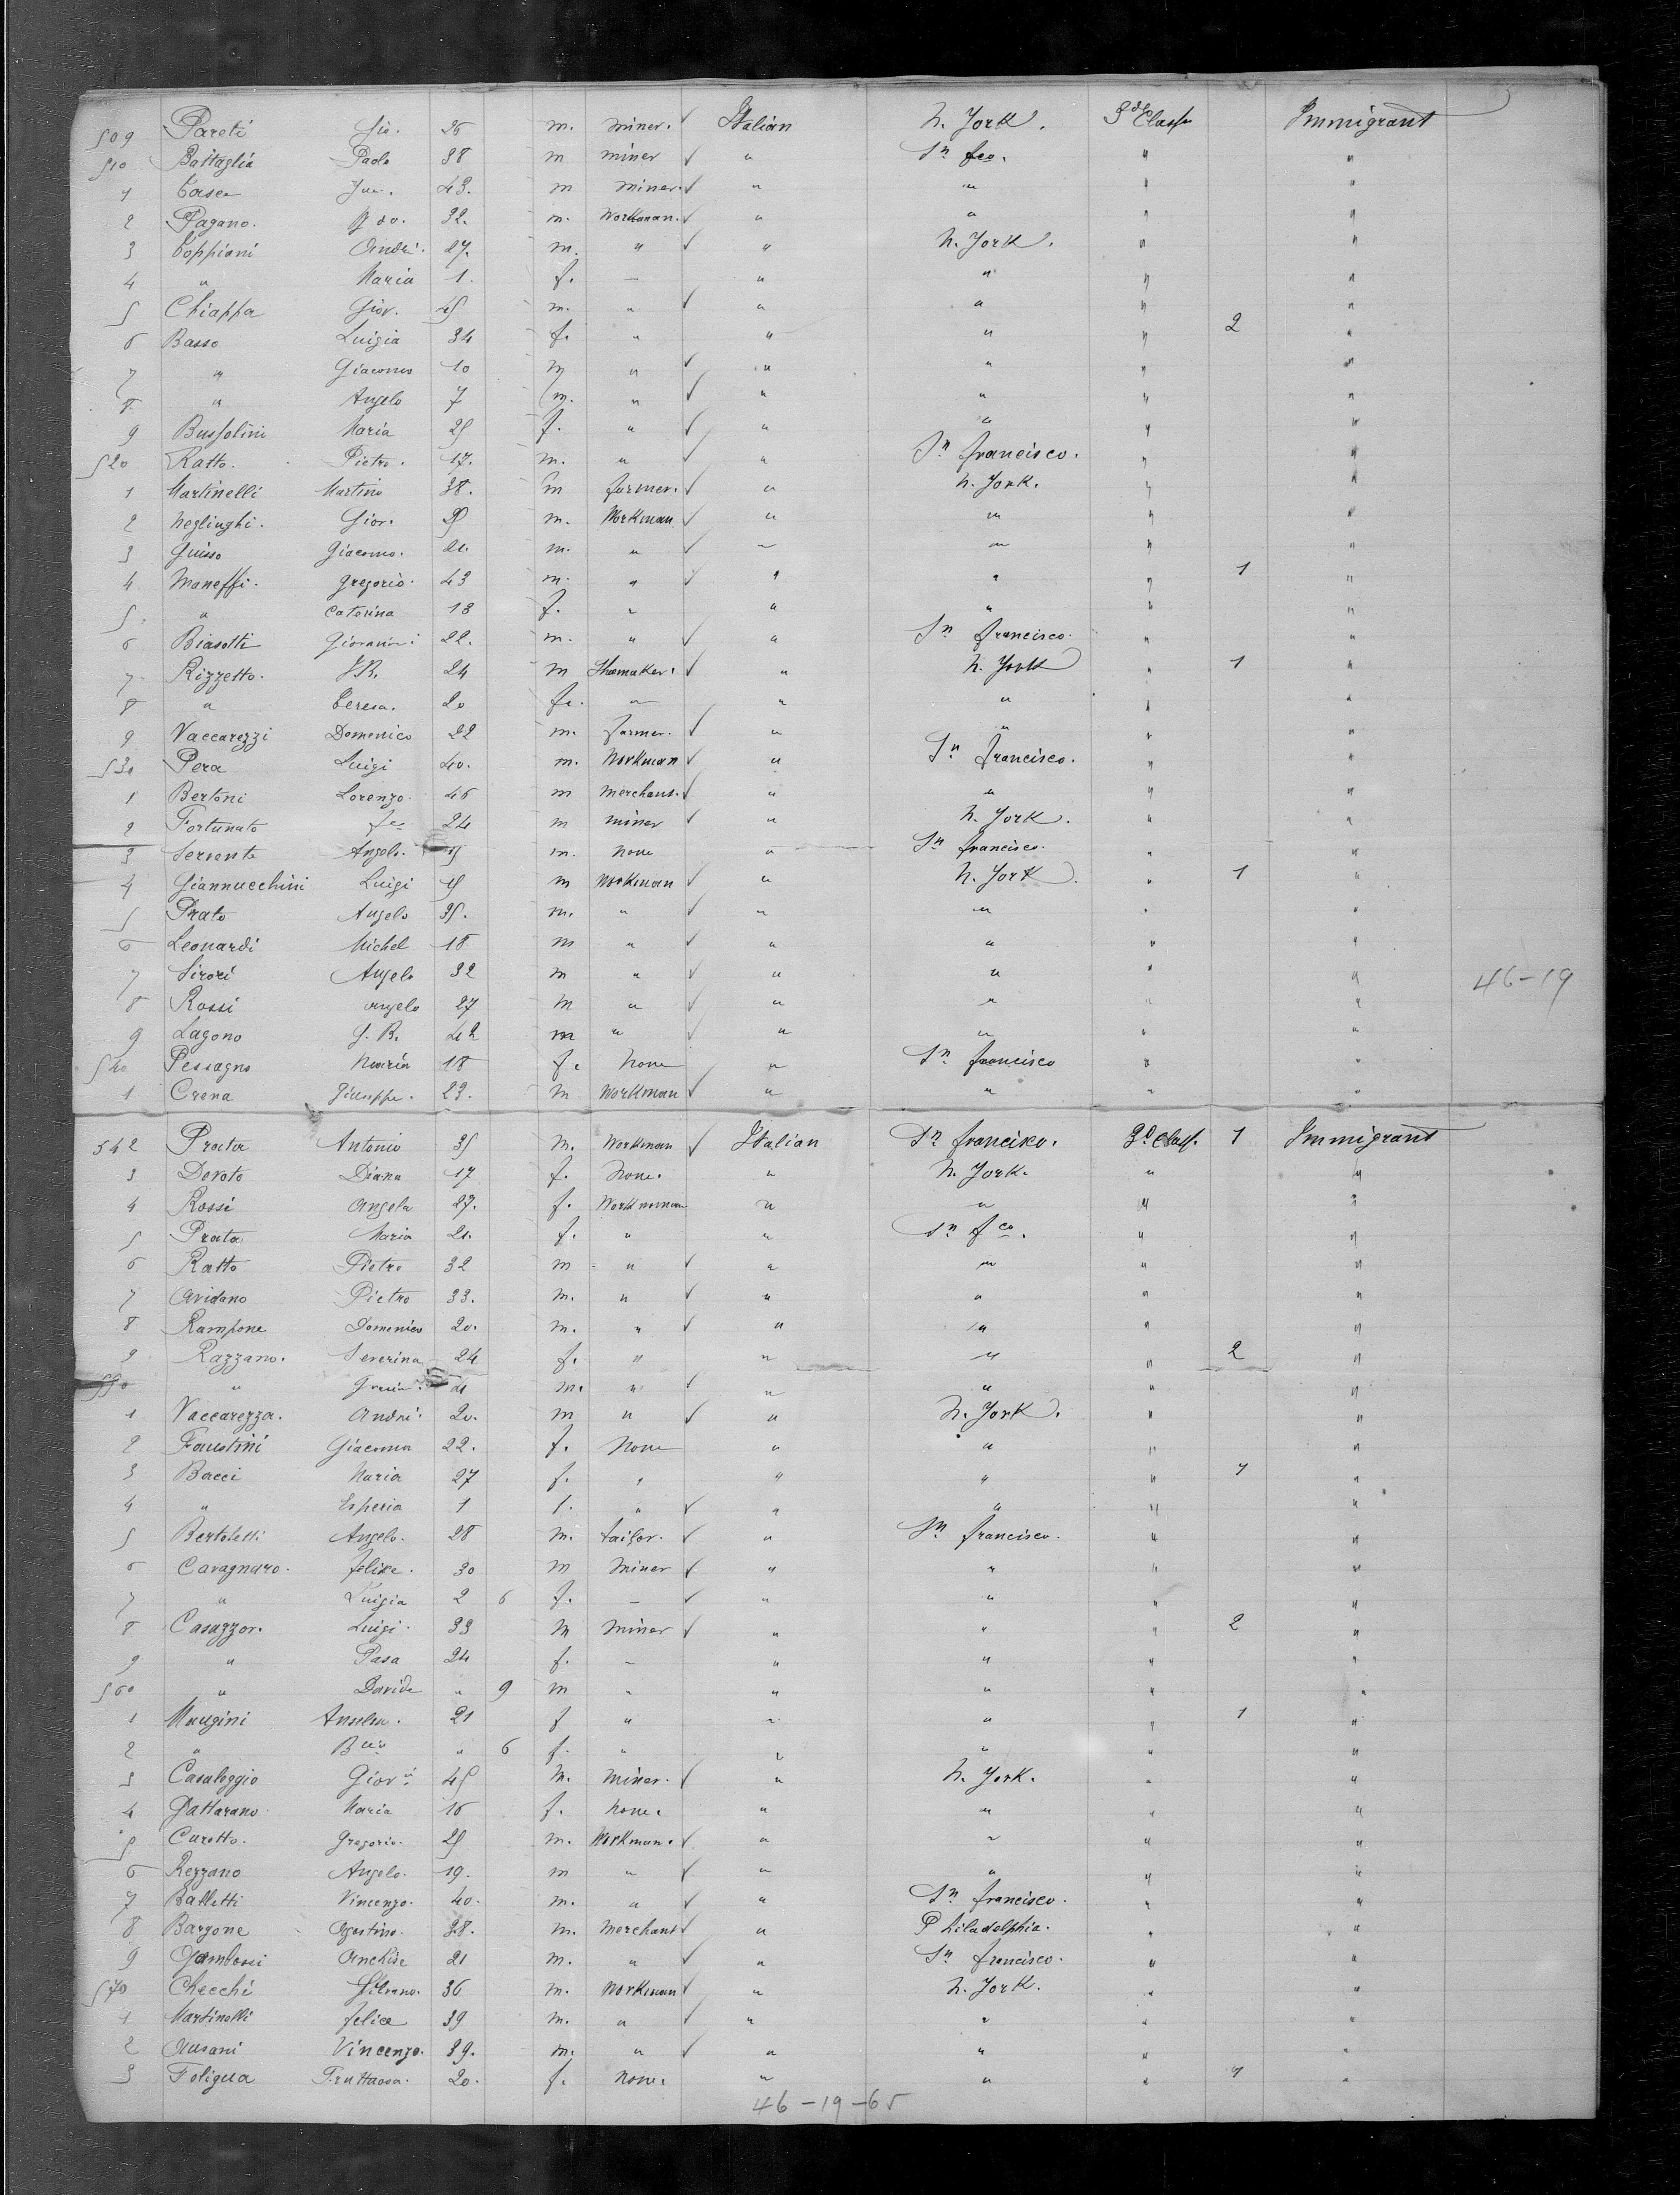 509 Pareti Gio. 36 m. miner. ✓ Italian N. York. 3d Class Immigrant
510 Battaglia Paolo 38 m miner ✓ " Sn fco. " "
1 43. m miner. ✓ " " " "
2 Pagano. 32. m. Workman. ✓ " " " "
3 Coppiani Andri. 27. m. " ✓ " N. York. " "
4 " Maria 1. f. — " " " "
5 Chiappa Giov. 45 m. " ✓ " " " "
6 Basso Luigia 34 f. " " " " 2 "
7 " Giacomo 10 m " ✓ " " " "
8 " Angelo 7 m. " ✓ " " " "
9 Bussolini Maria 25 f. " ✓ " " " "
520 Ratto. Pietro. 17. m. " ✓ " Sn francisco. " "
1 Martinelli Martino 38. m farmer. ✓ " N. York. " "
2 Neglinghi. Giov. 25 m. Workman ✓ " " " "
3 Guisso Giacomo. 21. m. " ✓ " " " "
4 Maneffi. Gregorio. 43 m. " ✓ " " " 1 "
5. " Caterina 18 f. " " " " "
6 Biasotti Giovanni 22. m. " ✓ " Sn francisco. " "
7 Rizzetto. G.B. 24 m Shoemaker. ✓ " N. York " 1 "
8 " Teresa. 20 fe. " " " " "
9 Vaccarezzi Domenico 22 m. farmer. ✓ " " " "
530 Pera Luigi 40. m. Workman ✓ " Sn francisco. " "
1 Bertoni Lorenzo. 46 m merchant. ✓ " " " "
2 Fortunato 24 m miner ✓ " N. York. " "
3 Servente Angelo. m. None " Sn francisco. " "
4 Giannucchini Luigi 45 m Workman ✓ " N. York. " 1 "
5 Prato Angelo 35. m. " ✓ " " " "
6 Leonardi Michel 18 m " ✓ " " " "
7 Sirori Angelo 32 m " ✓ " " " "
46-19
8 Rossi angelo 27 m " ✓ " " " "
9 Lagono G. B. 42 m " ✓ " " " "
540 Pessagno Maria 18 f. None " Sn francisco " "
1 Crena Giuseppe. 23. m Workman ✓ " " " "
542 Prata Antonio 35 m. Workman ✓ Italian Sn francisco. 3d Class. 1 Immigrant
3 Devoto Diana 17 f. None. " N. York. " "
4 Rossi Angela 27. f. " " " "
5 Prata. Maria 21. f. " " Sn fco. " "
6 Ratto Pietro 32 m " ✓ " " " "
7 Avidano Pietro 33. m. " ✓ " " " "
8 Rampone Domenico 20. m. " ✓ " " " "
9 Razzano. Severina 24 f. " " " " 2 "
550 " m. " ✓ " " " "
1 Vaccarezza. Andri. 20. m " ✓ " N. York. " "
2 Faustini Giacoma 22. f. None " " " "
3 Bacci Maria 27 f. " " " " 1 "
4 " Esperia 1 f. " ✓ " " " "
5 Bertoletti Angelo. 28 m. tailor. ✓ " Sn francisco. " "
6 Cavagnaro. felice. 30 m miner ✓ " " " "
7 " Luigia 2 6 f. — ✓ " " " "
8 Casazzor. Luigi. 33 m miner ✓ " " " 2 "
9 " Rosa 24 f. " " " " "
560 " Davide " 9 m " " " " "
1 Maugini Anselm. 21 f " " " " 1 "
2 " " 6 f. " " " " "
3 Casaleggio Giovni. 45 m. miner. ✓ " N. York. " "
4 Gattarano. Maria 16 f. None. " " " "
5 Curotto. Gregorio. 25 m. Workman. ✓ " " " "
6 Rezzano Angelo. 19. m " ✓ " " " "
7 Balletti Vincenzo. 40. m. " ✓ " Sn francisco. " "
8 Bargone Agostino. 38. m. merchant ✓ " Philadelphia. " "
9 Gambossi Anchise 21 m. " ✓ " Sn francisco. " "
570 Checchi Silvano. 36 m. Workman ✓ " N. York. " "
1 Martinelli felice 39 m. " ✓ " " " "
2 Ausani Vincenzo. 39. m. " ✓ " " " "
3 Foligua Fruttuosa. 20. f. None. " " " 1 "
46-19-65